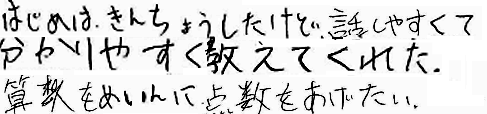 はじめは、きんちょうしたけど、話しやすくて
分かりやすく教えてくれた。
算数をめいんに点数をあげたい。